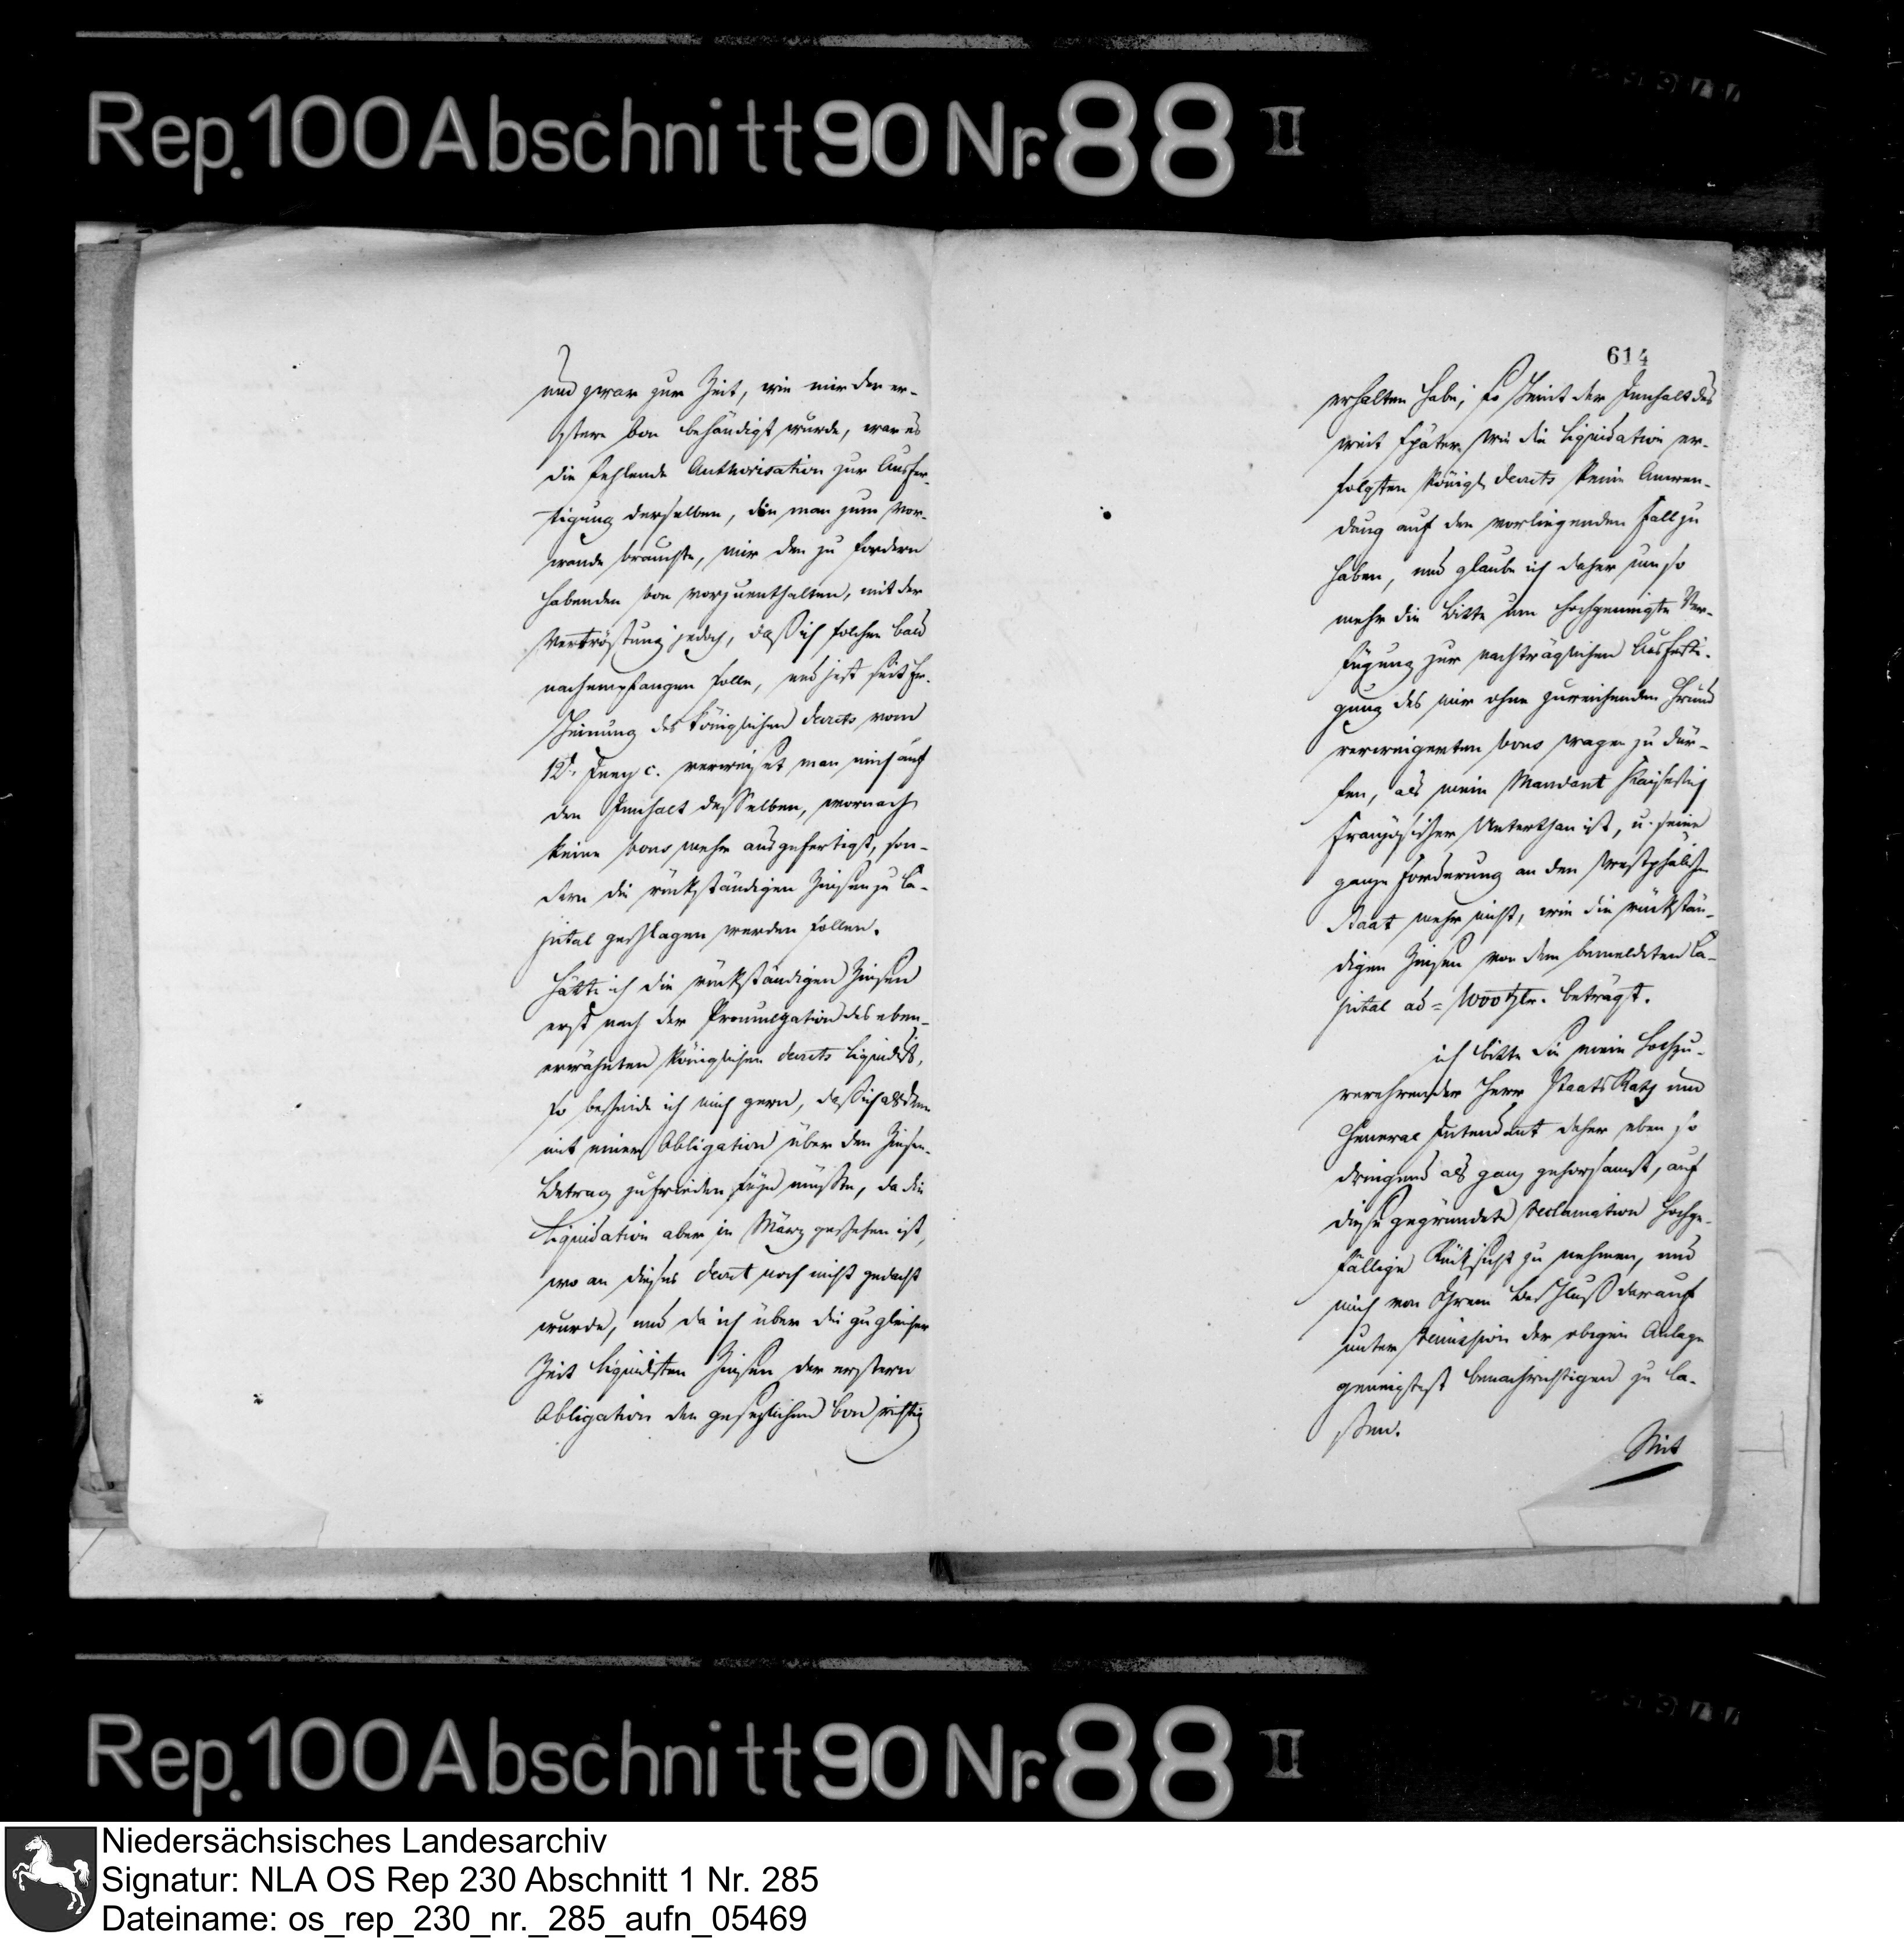 Rep. 100 Abschnitt 90 Nr. 88 II
und zwar zur Zeit, wie mir der er-
stere bon behändigt wurde, war es
die fehlende Authorisation zur Ausfer-
tigung derselben, die man zum Vor-
wande brauchte, mir den zu fordern
habenden bon vorzuenthalten, mit der
Vertröstung jedoch, daß ich solchen bald
nachempfangen solle, und jetzt seit Er-
scheinung des Königlichen decrets vom
12t. Juny c. verweiset man mich auf
den Innhalt desselben, wornach
keine bons mehr ausgefertigt, son-
dern die rückständigen Zinsen zu Ca-
pital geschlagen werden sollen.
Hätte ich die rückständigen Zinsen
erst nach der Promulgation des eben-
erwähnten Königlichen decrets liquidirt,
so bescheide ich mich gern, daß ich alsdenn
mit einer Obligation über den Zinsen-
Betrag zufrieden seyn müßte, da die
Liquidation aber in März geschehen ist,
wo an dieses decret noch nicht gedacht
wurde, und da ich über die zu gleicher
Zeit liquidirten Zinsen der erstern
Obligation den gesezlichen bon richtig
614
erhalten habe, so scheint der Innhalt des
weit später, wie die Liquidation er-
folgten Königl. decrets keine Anwen-
dung auf den vorliegenden Fall zu
haben, und glaube ich daher um so
mehr die Bitte um hochgeneigte Ver-
fügung zur nachträglichen Ausferti-
gung des mir ohne zureichenden Grund
verweigerten bons wagen zu dür-
fen, als mein Mandant Kaiserlich
Französischer Unterthan ist, u. seine
ganze Forderung an den Westphälischen
Staat mehr nicht, wie die rückstän-
digen Zinsen von dem bemeldeten Ca-
pital ad = 1000 thlr. beträgt.
ich bitte Sie mein Hochzu-
verehrender Herr StaatsRath und
General Intendant daher eben so
dringend als ganz gehorsamst, auf
diese gegründete reclamation hochge-
fällige Rücksicht zu nehmen, und
mich von Ihrem Beschluß darauf
unter remission der obigen Anlage
geneigtest benachrichtigen zu la-
ßen.
Mit
Rep. 100 Abschnitt 90 Nr. 88 II
Niedersächsisches Landesarchiv
Signatur: NLA OS Rep 230 Abschnitt 1 Nr. 285
Dateiname: os_rep_230_nr._285_aufn_05469